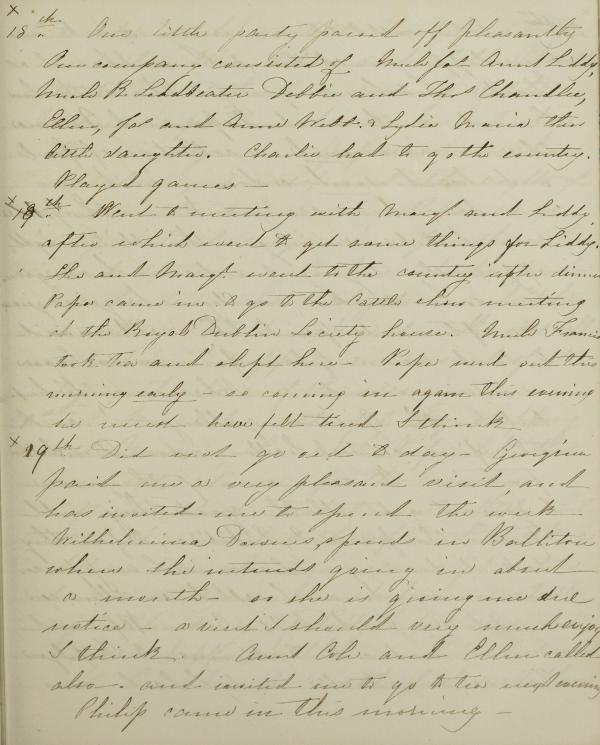 15th Our little party passed off pleasantly
Our company consisted of Uncle Jos. Aunt Liddy,
Uncle R. Leadbeater Debbie and Thos Chandlee,
Ellen, Jos and Anne Webb. & Lydia Maria their
little daughter. Charlie had to go to the country.
Played games —
18th Went to meeting with Margt. and Liddy
after which went to get some things for Liddy.
She and Margt went to the country after dinner
Papa came in to go to the Cattle show meeting
at the Royal Dublin Society house. Uncle Francis
took tea and slept here — Papa went out this
morning early — so coming in again this evening
he must have felt tired I think
19th Did not go out to day — Georgina
paid me a very pleasant visit, and
has invited me to spend the week
Wilhelmina Downes spends in
where she intends going in about
a month — as she is giving me due
notice — a visit I should very much enjoy
I think. Aunt Cole and Ellen called
also. and invited me to go to tea next evening
Philip came in this morning —